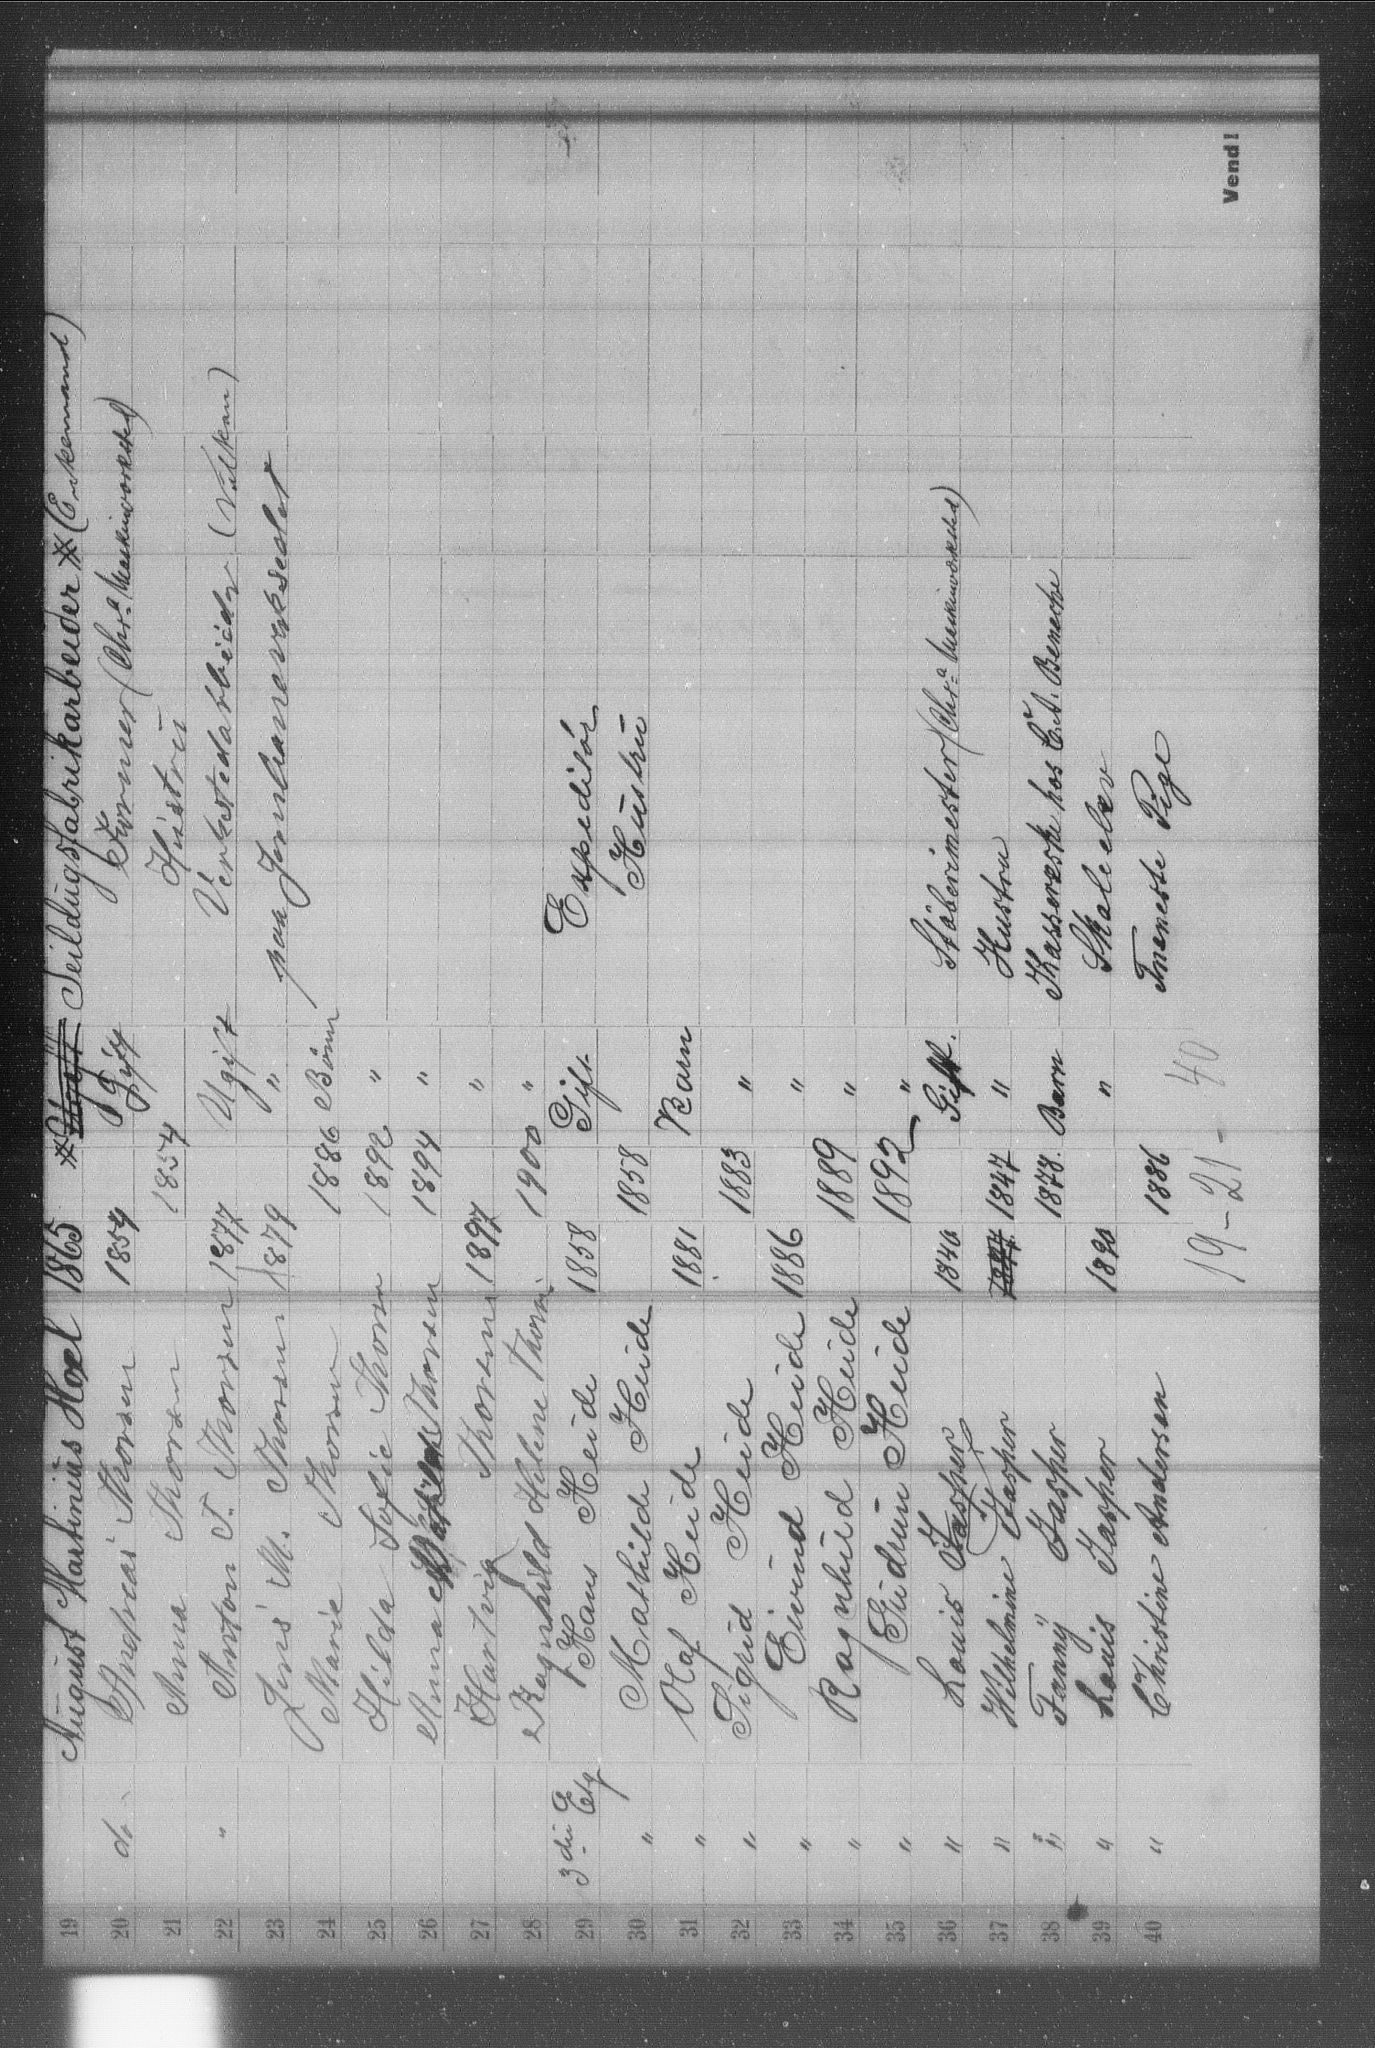 19 August Martinius Hoel 1865 Ugift Seildugsfabrikarbeider (Enkemand)
20 do Andreas Thorsen 1854 Gift Former (Chr.a Mekv. værksted)
21 Anna Thorsen 1854 Gift Hustru
22 " Anton T. Thorsen 1877 Ugift Verkstedarbeider (Vulkan)
23 Jens M. Thorsen 1879 " paa Jernbaneverkstedet
24 Marie Thorsen 1886 Børn
25 Hilda Sofie Thorsen 1892 "
26 Anna Thorsen 1894 "
27 Hartvig Thorsen 1897 "
28 Ragnhild Helene Thorsen 1900 "
29 3die Etg Hans Heide 1858 Gift Expeditör
30 " Mathilde Heide 1858 Hustru
31 " Olaf Heide 1881 Barn
32 " Sigrid Heide 1883 "
33 " Eivind Heide 1886 "
34 " Ragnhild Heide 1889 "
35 " Gudrun Heide 1892 "
36 " Louis Jasper 1846 Gift. Stöberimester (Chr.a Mek. værksted)
37 " Wilhelmine Jasper 1847 " Hustru
38 " Fanny Jasper 1878. Barn Kassererske hos C. A. Benecke
39 " Louis Jasper 1890 " Skoleelev
40 " Christine Andersen 1886 Tjeneste Pige
19 - 21 - 40
Vend!